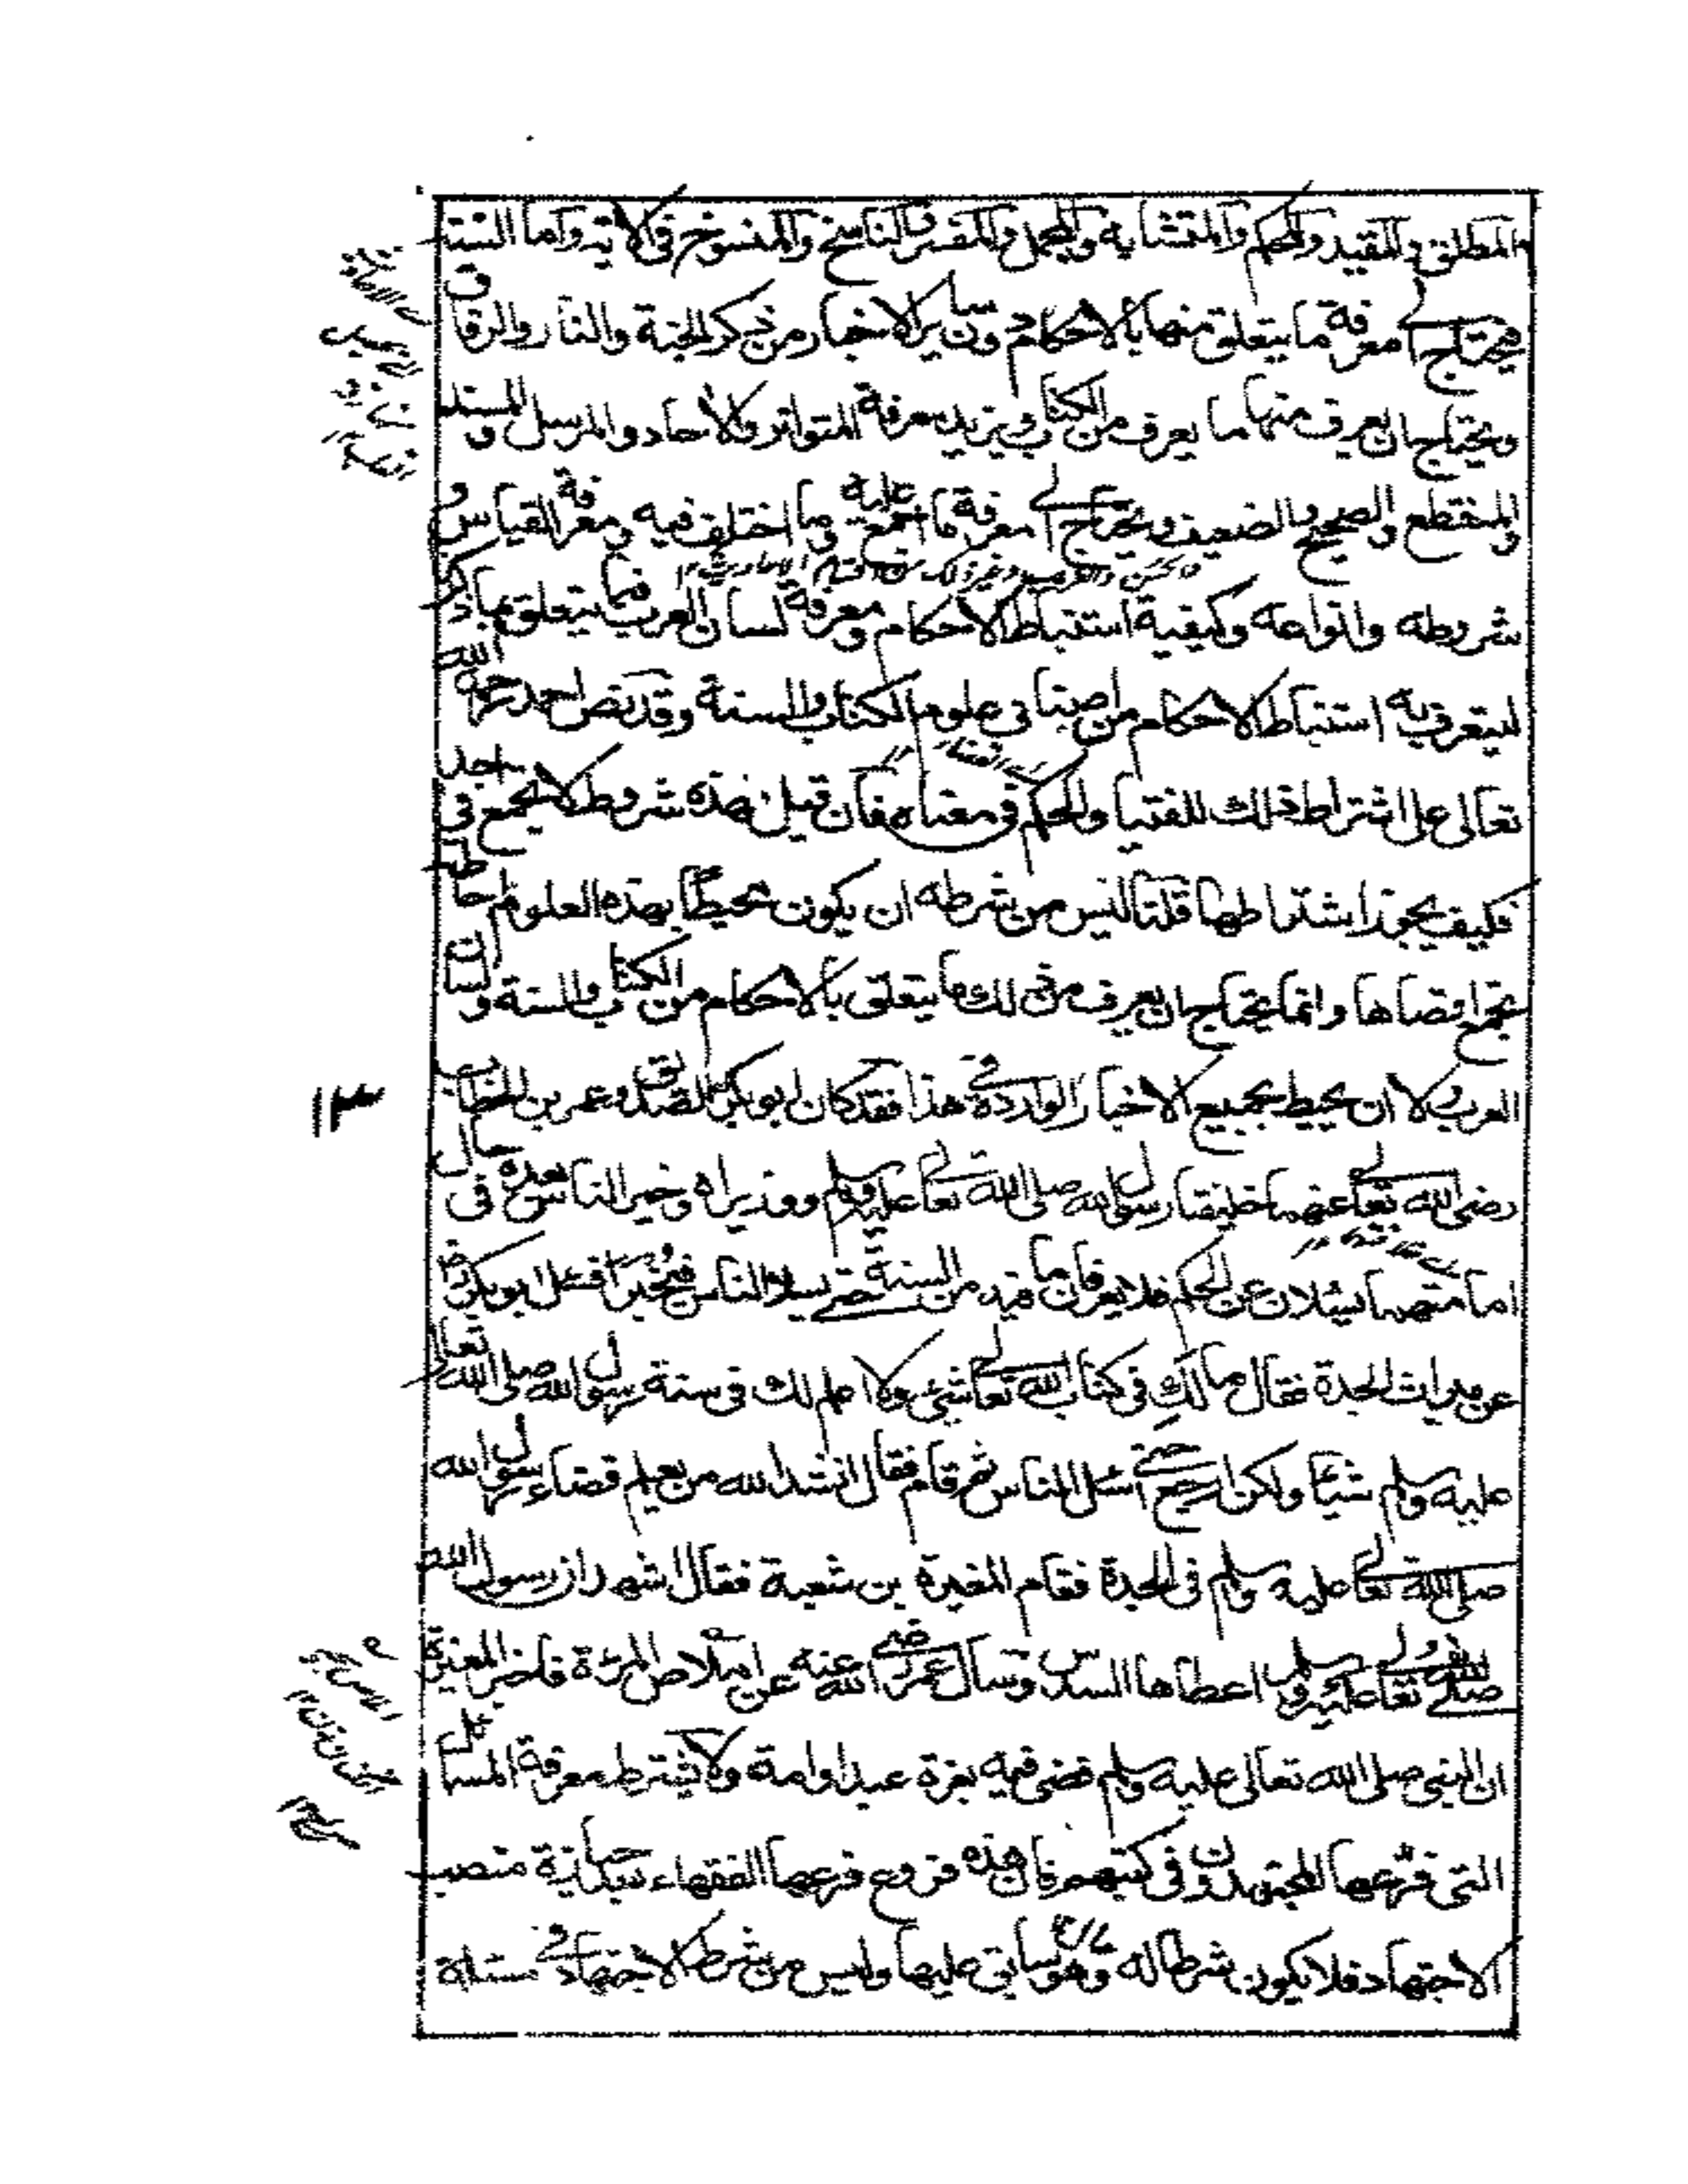 والمطلق والمقيد والمحكم والمتشابه والمجمل والمفسر والناسخ والمنسوخ في الآية وأما السنة
فيحتاج إلى معرفة ما يتعلق منها بالاحكام دون سائر الاخبار من ذكر الجنة والنار والرقاق
ويحتاج ان يعرف منها ما يعرف من الكتاب ويزيد معرفة المتواتر والآحاد والمرسل والمسند
والمنقطع والصحيح والضعيف ويحتاج إلى معرفة ما اجمع عليه وما اختلف فيه ومعرفة القياس و
شروطه وانواعه وكيفية استنباط الاحكام ومعرفة لسان العرب فيما يتعلق بما ذكر
ليتعرف به استنباط الاحكام من اصناف علوم الكتاب والسنة وقد نص احمد رحمه الله
تعالى على اشتراط ذلك للفتيا والحكم في معناه فان قيل هذه شروط لا تجمع في واحد
فكيف يجوز اشتراطها قلنا ليس من شرطه ان يكون محيطاً بهذه العلوم احاطة
تجمع اقصاها وانما يحتاج ان يعرف من ذلك ما يتعلق بالاحكام من الكتاب والسنة ولسان
العرب ولا ان يحيط بجميع الاخبار الواردة في هذا فقد كان ابو بكر الصديق وعمر بن الخطاب
١٣
رضى الله تعالى عنهما خليفتا رسول الله صلى الله تعالى عليه وسلم ووزيراه وخير الناس بعده في حال
امامتهما يسئلان عن الحكم فلا يعرفان ما فيه من السنة حتى يسئلا الناس فيخبرا فسئل ابو بكر رض
عن ميراث الجدة فقال مالك في كتاب الله تعالى شئ ولا اعلم لك في سنة رسول الله صلى الله تعالى
عليه وسلم شيئا ولكن ارجعي حتى اسئل الناس ثم قام فقال انشد الله من يعلم قضاء رسول الله
صلى الله تعالى عليه وسلم في الجدة فقام المغيرة بن شعبة فقال اشهد ان رسول الله
صلى الله تعالى عليه وسلم اعطاها السدس وسأل عمر رضي الله عنه عن املاص المرءة فاخبر المغيرة
ان النبى صلى الله تعالى عليه وسلم قضى فيه بغرة عبد او امة ولا يشترط معرفة المسائل
التى فرعها المجتهدون في كتبهم فان هذه فروع فرعها الفقهاء بعد حيازة منصب
الاجتهاد فلا يكون شرطا له وهو سابق عليها وليس من شرط الاجتهاد في مسئلة